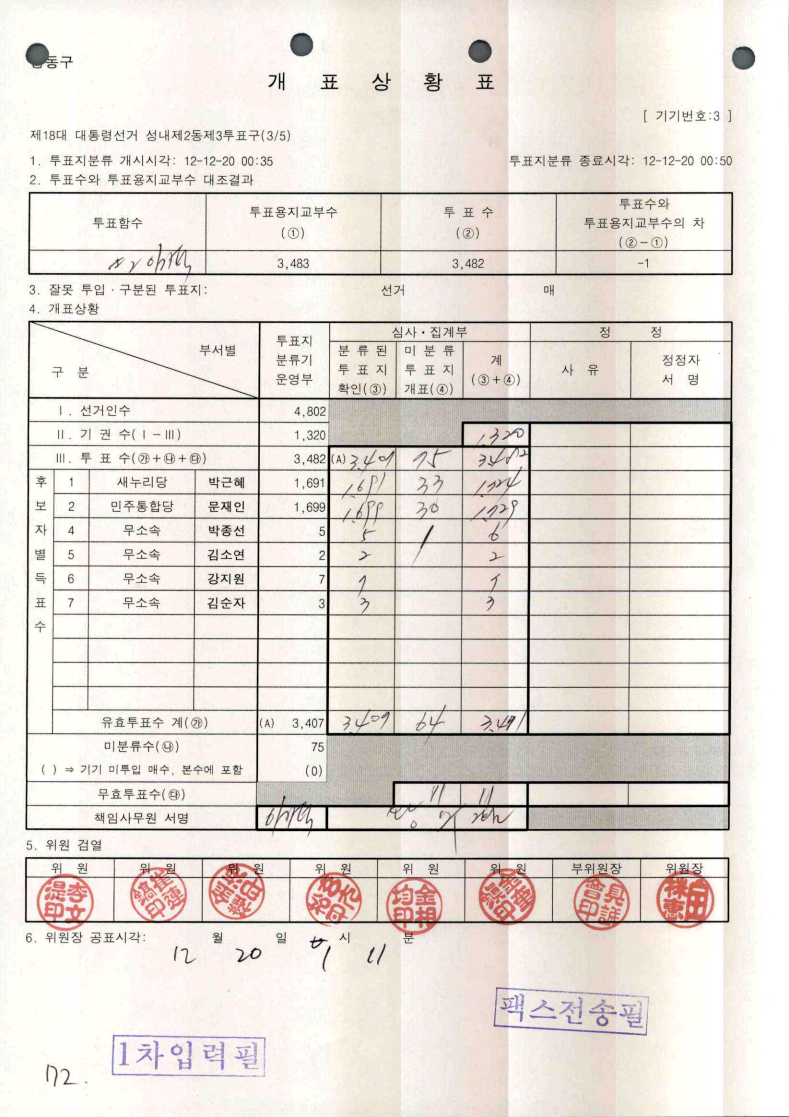 개 표 상 황 표
[ 기기번호:3 ]
제18대 대통령선거 성내제2동제3투표구(3/5)
1. 투표지분류 개시시각: 12-12-20 00:35 투표지분류 종료시각: 12-12-20 00:50
2. 투표수와 투표용지교부수 대조결과
투표함수 투표용지교부수 (①) 투 표 수 (②) 투표수와 투표용지교부수의 차 (②-①)
3,483 3,482 -1
3. 잘못 투입·구분된 투표지: 선거 매
4. 개표상황
구 분 부서별 투표지 분류기 운영부 심사·집계부 정 정
분 류 된 투 표 지 확인(③) 미 분 류 투 표 지 개표(④) 계 (③+④) 사 유 정정자 서 명
Ⅰ. 선거인수 4,802
Ⅱ. 기 권 수(Ⅰ-Ⅲ) 1,320 1,320
Ⅲ. 투 표 수(㉮+㉯+㉰) 3,482 (A) 3,407 75 3,482
후보자별득표수
1 새누리당 박근혜 1,691 1,691 33 1,724
2 민주통합당 문재인 1,699 1,699 30 1,729
4 무소속 박종선 5 5 1 6
5 무소속 김소연 2 2 2
6 무소속 강지원 7 7 7
7 무소속 김순자 3 3 3
유효투표수 계(㉮) (A) 3,407 3,407 64 3,471
미분류수(㉯) 75
( ) ⇒ 기기 미투입 매수, 본수에 포함 (0)
무효투표수(㉰) 11 11
책임사무원 서명
5. 위원 검열
위 원 위 원 위 원 위 원 위 원 위 원 부위원장 위원장
6. 위원장 공표시각: 12 월 20 일 시 11 분
팩스전송필
1차입력필
172.